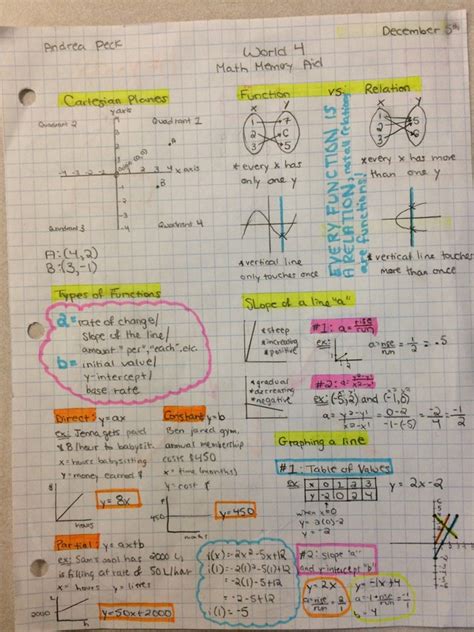 Andrea Peck
World 4
December 5th
Math Memory Aid
Cartesian Planes
y axis
Quadrant 2
Quadrant 1
x axis
Quadrant 3
Quadrant 4
A: (4,2)
B: (3,-1)
Function vs. Relation
x y
x y
*every x has
only one y
*every x has more
than one y
EVERY FUNCTION IS
A RELATION, not all relations
are functions!
*vertical line
only touches once
*vertical line touches
more than once
Types of Functions
a = rate of change/
slope of the line/
amount "per", "each", etc.
b = initial value/
y-intercept/
base rate
Slope of a line "a"
*steep
*increasing
*positive
#1: a = rise/run
ex: a = rise/run = 1/2 = .5
*gradual
*decreasing
*negative
#2: a =
ex: (-5,2) and (-1,0)
a = = 0-2 = -2/4 = -1/2
Direct: y=ax
ex: Jenna gets paid
$8/hour to babysit.
x = hours babysitting
y = money earned $
y = 8x
hours
Constant: y=b
Ben joined gym.
annual membership
costs $450
x = time (months)
y = cost $
450
y = 450
months
Graphing a line
#1: Table of Values
ex: x 0 1 2 3
y -2 0 2 4
y = 2x - 2
when x=0
y = 2(0)-2
y = -2
Partial: y = ax+b
ex: Sam's pool has 2000 L,
is filling at rate of 50 L/hour
x = hours y = litres
2000
y = 50x + 2000
hours
i(x) = -2x²-5x+12
i(1) = -2(1)²-5(1)+12
= -2(1)-5+12
= -2-5+12
i(1) = 5
#2: slope "a"
and y intercept "b"
y = 2x
a = rise/run = 2
y = -1x+4
a = -1 = rise/run
b = 4